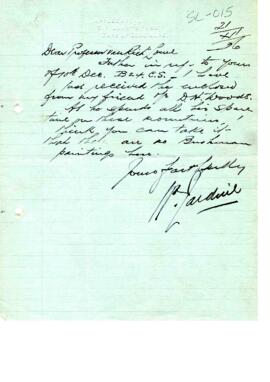 SL-015
21/4/36
Dear Professor van Riet Lowe
Further in ref. to yours
of 10th Dec. B44.C.S. - I have
just received the enclosed
from my friend Mr D.H. Woods.
As he spends all his spare
time on these mountains, I
think you can take it
that that are no Bushman
paintings here.
Yours faithfully